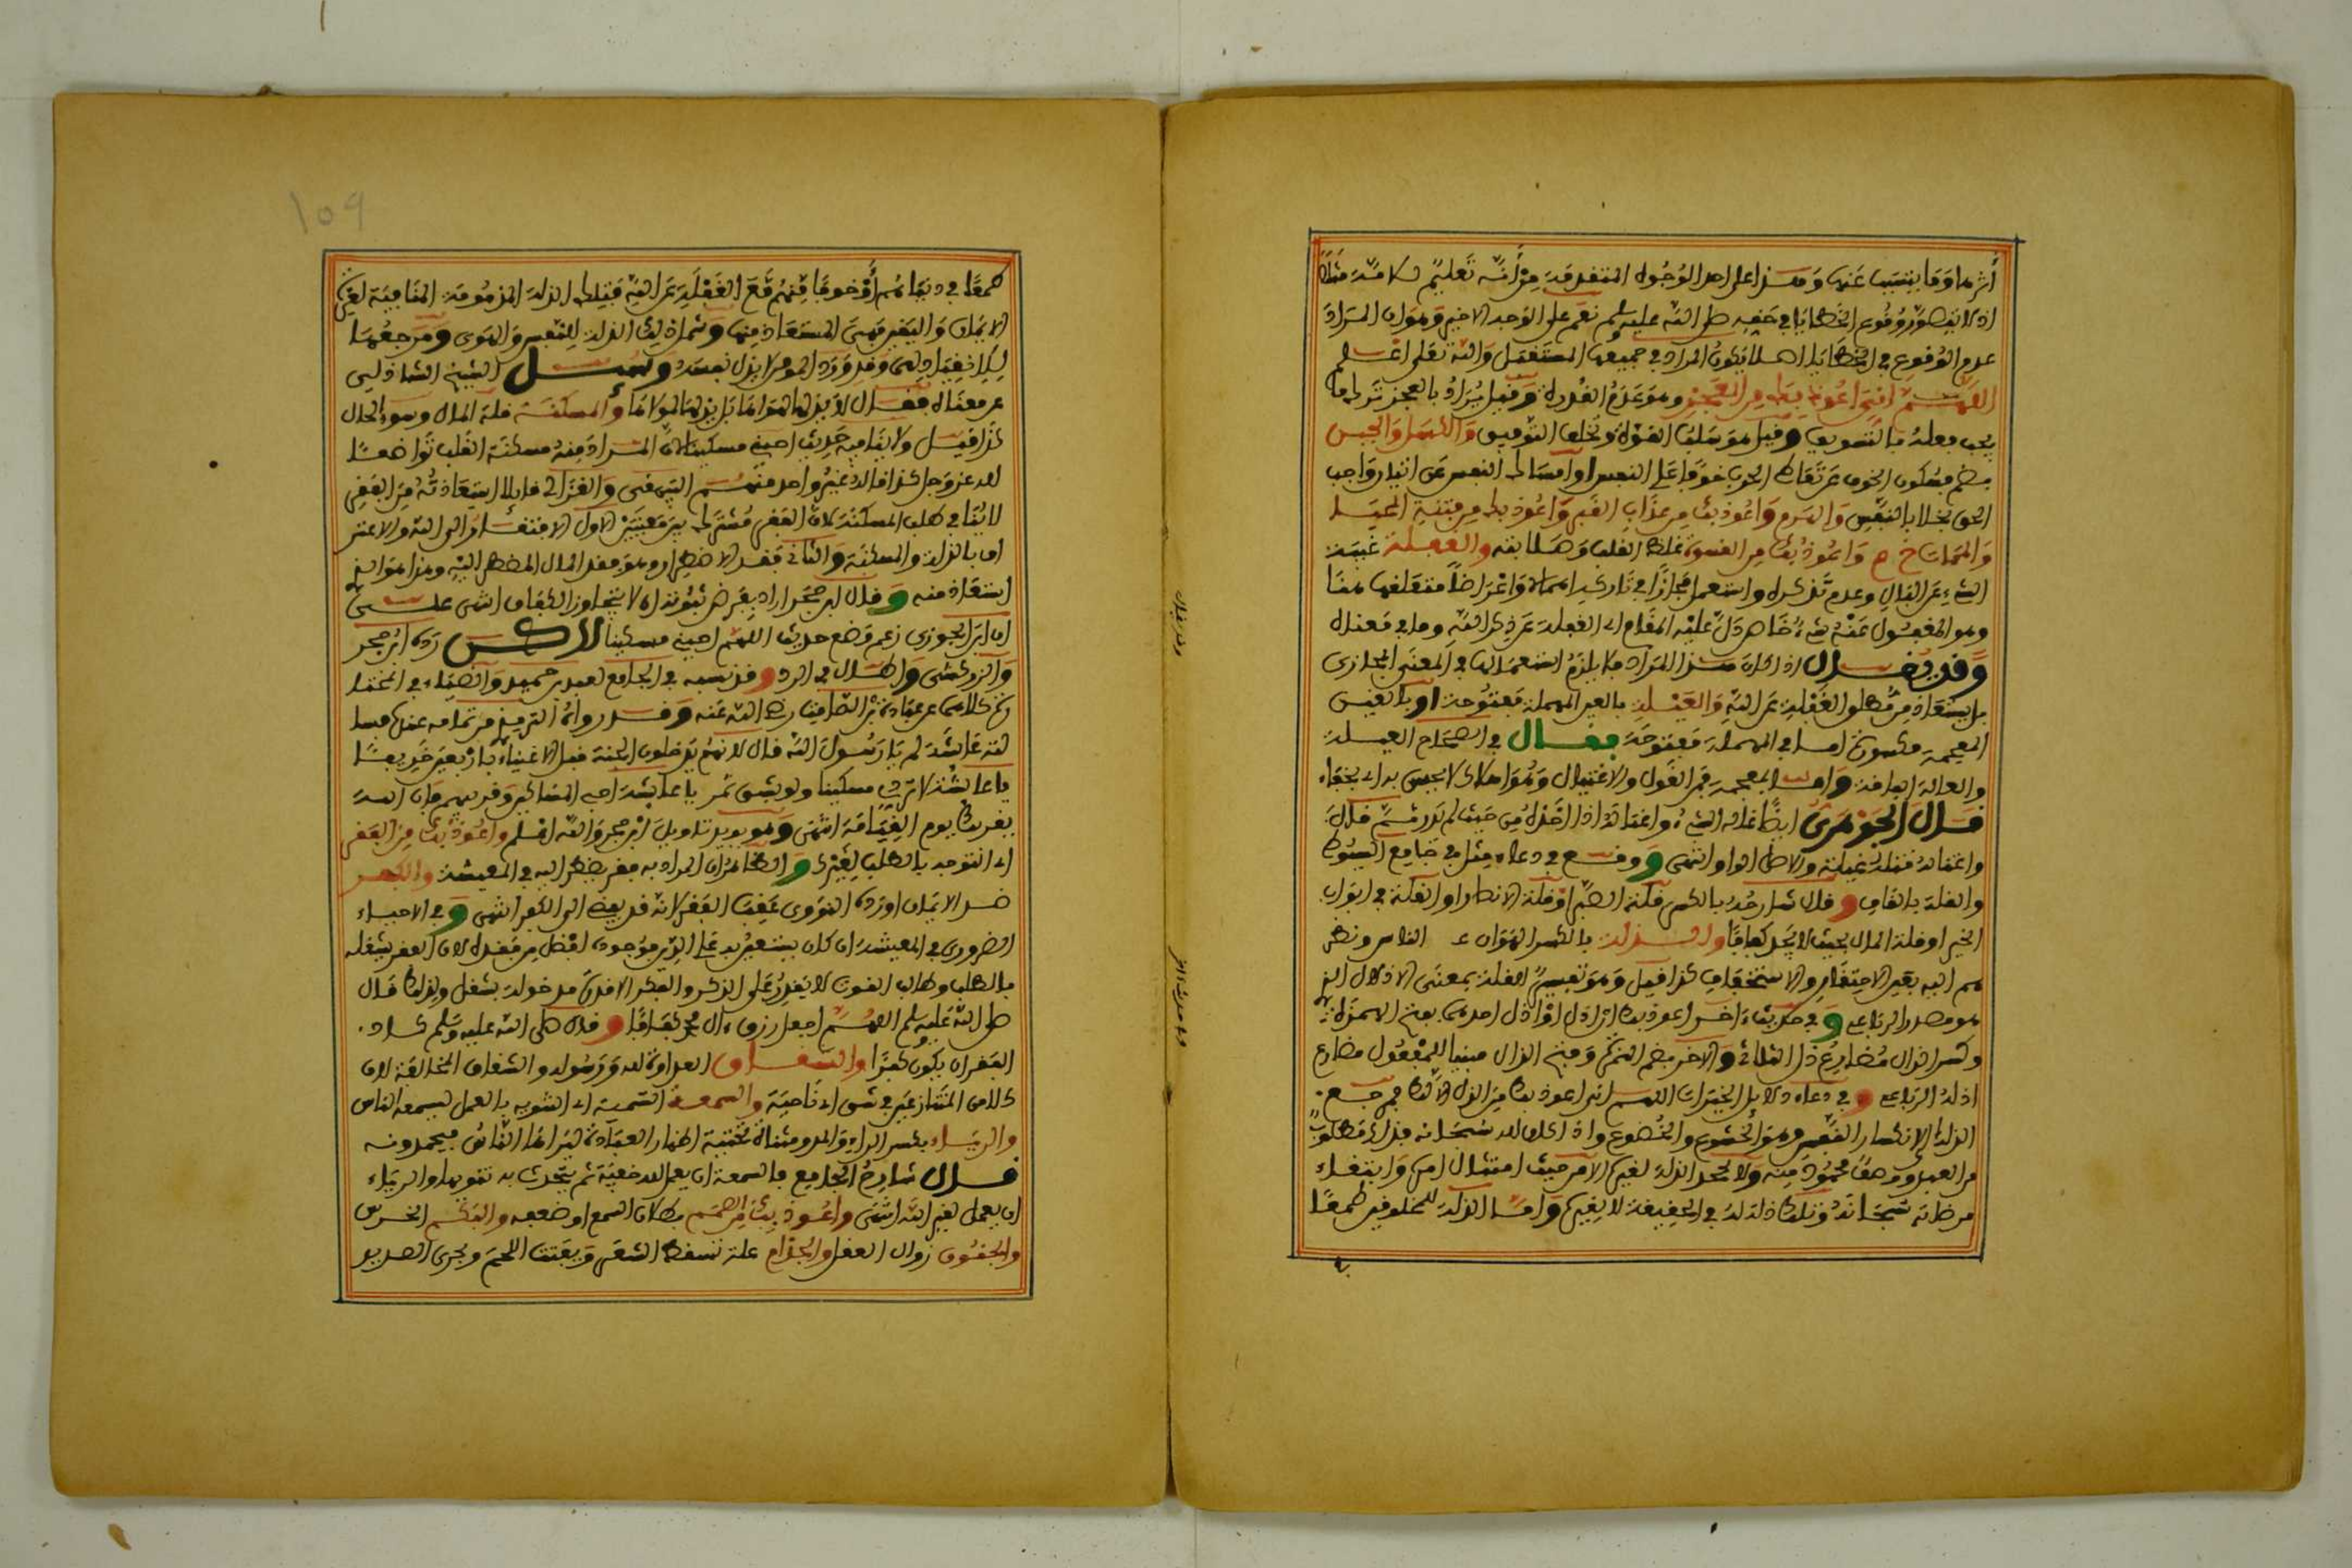 أثرها وما يتسبب عنها وهذا على احد الوجوه المتقدمة من أنه تعليم لامته مثلا
اذ لا يتصور وقوع الخطايا في حقه صلى الله عليه وسلم نعم على الوجه الاخير وهو ان المراد
عدم الوقوع في الخطايا اصلا يكون المراد في جميعها المستقبل والله تعلى اعلم
اللهم اني اعوذ بك من العجز وهو عدم القدرة وقيل يراد بالعجز ترك ما
يجب فعله بالتسويف وقيل هو سلب القوة وتخلف التوفيق والكسل والجبن
بضم فسكون الخوف عن تعاطي الحرب خوفا على النفس او امساك النفس عن اتيان واجب
الحق بخلا بالنفس والهرم واعوذ بك من عذاب القبر واعوذ بك من فتنة المحيا
والممات خ م واعوذ بك من القسوة غلظ القلب وصلابته والغفلة غيبة
الشيء عن البال وعدم تذكره واستعمل مجازا في تاركه اهمالا واعراضا متعلقها هنا
وهو المغفول عنه شيء خاص دل عليه المقام اي الغفلة عن ذكر الله وما في معناه
وقد يقال اذا كان هذا المراد فلا يلزم استعمالها في المعنى المجازي
بل يستعاذ من مطلق الغفلة عن الله والعيلة بالعين المهملة مفتوحة او بالغين
المعجمة مكسورة اما في المهملة مفتوحة فقال في الصحاح العيلة
والعالة الفاقة واما المعجمة فمن الغول والاغتيال وهو اهلاك لا يحس به اي بخفاء
قال الجوهري ايضا غاله الشيء واغتاله اذا اخذه من حيث لم يدر ثم قال
واغتاله قتله غيلة والاصل الواو انتهى ووقع في دعاء مثله في جامع السيوطي
والقلة بالقاف وقال شارحه بالكسر قلة الصبر او قلة الانصار او القلة في ابواب
الخير او قلة المال بحيث لا يجد كفافا والذلة بالكسر الهوان عند الناس ونظر
هم اليه بعين الاحتقار والاستخفاف كذا قيل وهو تفسير الذلة بمعنى الاذلال الذي
هو مصدر الرباعي وفي حديث آخر اعوذ بك ان اذل او اذل احدهما بفتح الهمزة
وكسر الذال مضارع ذل الثلاثي والاخر بضم الهمزة وفتح الذال مبنيا للمفعول مضارع
اذله الرباعي وفي دعاء دلائل الخيرات اللهم اني اعوذ بك من الذل الا لك فمرجع
الذلة الانكسار النفس وهو الخشوع والخضوع واذا كان لله سبحانه فذلك مطلوب
من العبد ووصف محمود منه ولا تحمد الذلة لغيره الا من حيث امتثال امره وابتغاء
مرضاته سبحانه وتلك ذلة له في الحقيقة لا لغيره واما الذلة للمخلوقين طمعا
طمعا في دنياهم أو خوفا منهم مع الغفلة عن الله فتلك الذلة المذمومة المنافية لعز
الايمان واليقين فهي المستعاذ منها وشمل ذلك الذلة للنفس والهوى ومرجعها
للاخفية اولى وقد ورد المومن لا يذل نفسه وسئل الشيخ الشاذلي
عن معناه فقال لا يذلها لهواها بل يذلها لمولاها والمسكنة قلة المال وسوء الحال
كذا قيل ولا ينافيه حديث احيني مسكينا لان المراد منه مسكنة القلب تواضعا
لله عز وجل كذا قاله غير واحد منهم البيهقي والغزالي قال لا استعاذته من الفقر
لا ينافي طلب المسكنة لان الفقر مشترك بين معنيين الاول الافتقار الى الله والاعتر
اف بالذلة والمسكنة والثاني فقد الاضطرار وهو فقد المال المضطر اليه وهذا هو الذي
استعاذ منه وقال ابن حجر اراد بفرض ثبوته ان لا يتجاوز الكفاف انتهى على
ان ابن الجوزي زعم وضع حديث اللهم احيني مسكينا لاكن رده ابن حجر
والزركشي واطال في الرد وقد نسبه في الجامع لعبد بن حميد والضياء في المختارة
كلاهما عن عبادة بن الصامت رضي الله عنه وقد رواه الترمذي من تمامه عندهما
لت عايشة لم يا رسول الله قال لانهم يدخلون الجنة قبل الاغنياء باربعين خريفا
يا عايشة لا تردي مسكينا ولو بشق تمر يا عايشة احبي المساكين وقربيهم فان الله
يقربك يوم القيامة انتهى وهو يويد تاويل ابن حجر والله اعلم واعوذ بك من الفقر
اي التوجه بالطلب لغيرك والظاهر ان المراد به فقر يضطر اليه في المعيشة والكفر
ضد الايمان اورده النووي عقب الفقر لانه قد يفضي الى الكفر انتهى وفي الاحياء
الضروري في المعيشة ان كان يستعين به على الدين فوجوده افضل من فقده لان الفقر يشغله
بالطلب وطالب القوت لا يقدر على الذكر والفكر الا قدرة مدخولة بشغل ولذلك قال
صلى الله عليه وسلم اللهم اجعل رزق ءال محمد كفافا وقال صلى الله عليه وسلم كاد
الفقر ان يكون كفرا والشقاق العداوة لله ورسوله والشقاق المخالفة لان
كلا من المتنازعين في شق اي ناحية والسمعة التسمية اي التنويه بالعمل ليسمعه الناس
والرياء بكسر الراء والمد ومثناة تحتية اظهار العبادة ليراها الناس فيحمدونه
قال شارح الجامع فالسمعة ان يعمل لله خفية ثم يتحدث به تنويها والرياء
ان يعمل لغير الله انتهى واعوذ بك من الصمم بطلان السمع او ضعفه والبكم الخرس
والجنون زوال العقل والجذام علة تسقط الشعر وتفتت اللحم وتجري الصديد
١٥٩